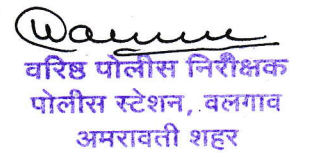 वरिष्ठ पोलीस निरीक्षक
पोलीस स्टेशन, वलगाव
अमरावती शहर